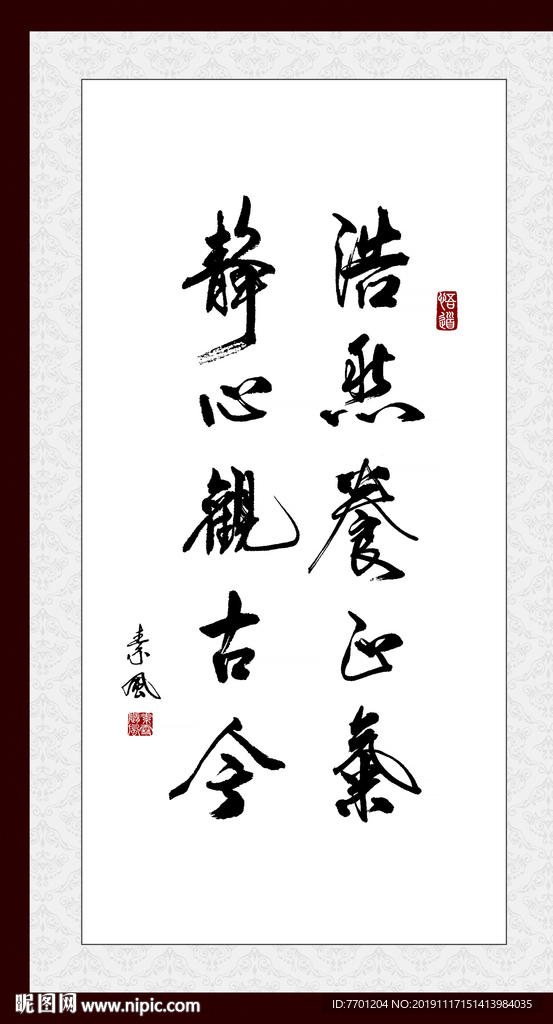 浩然養正氣
靜心觀古今
素風
悟道
昵图网 www.nipic.com
ID:7701204 NO:20191117151413984035